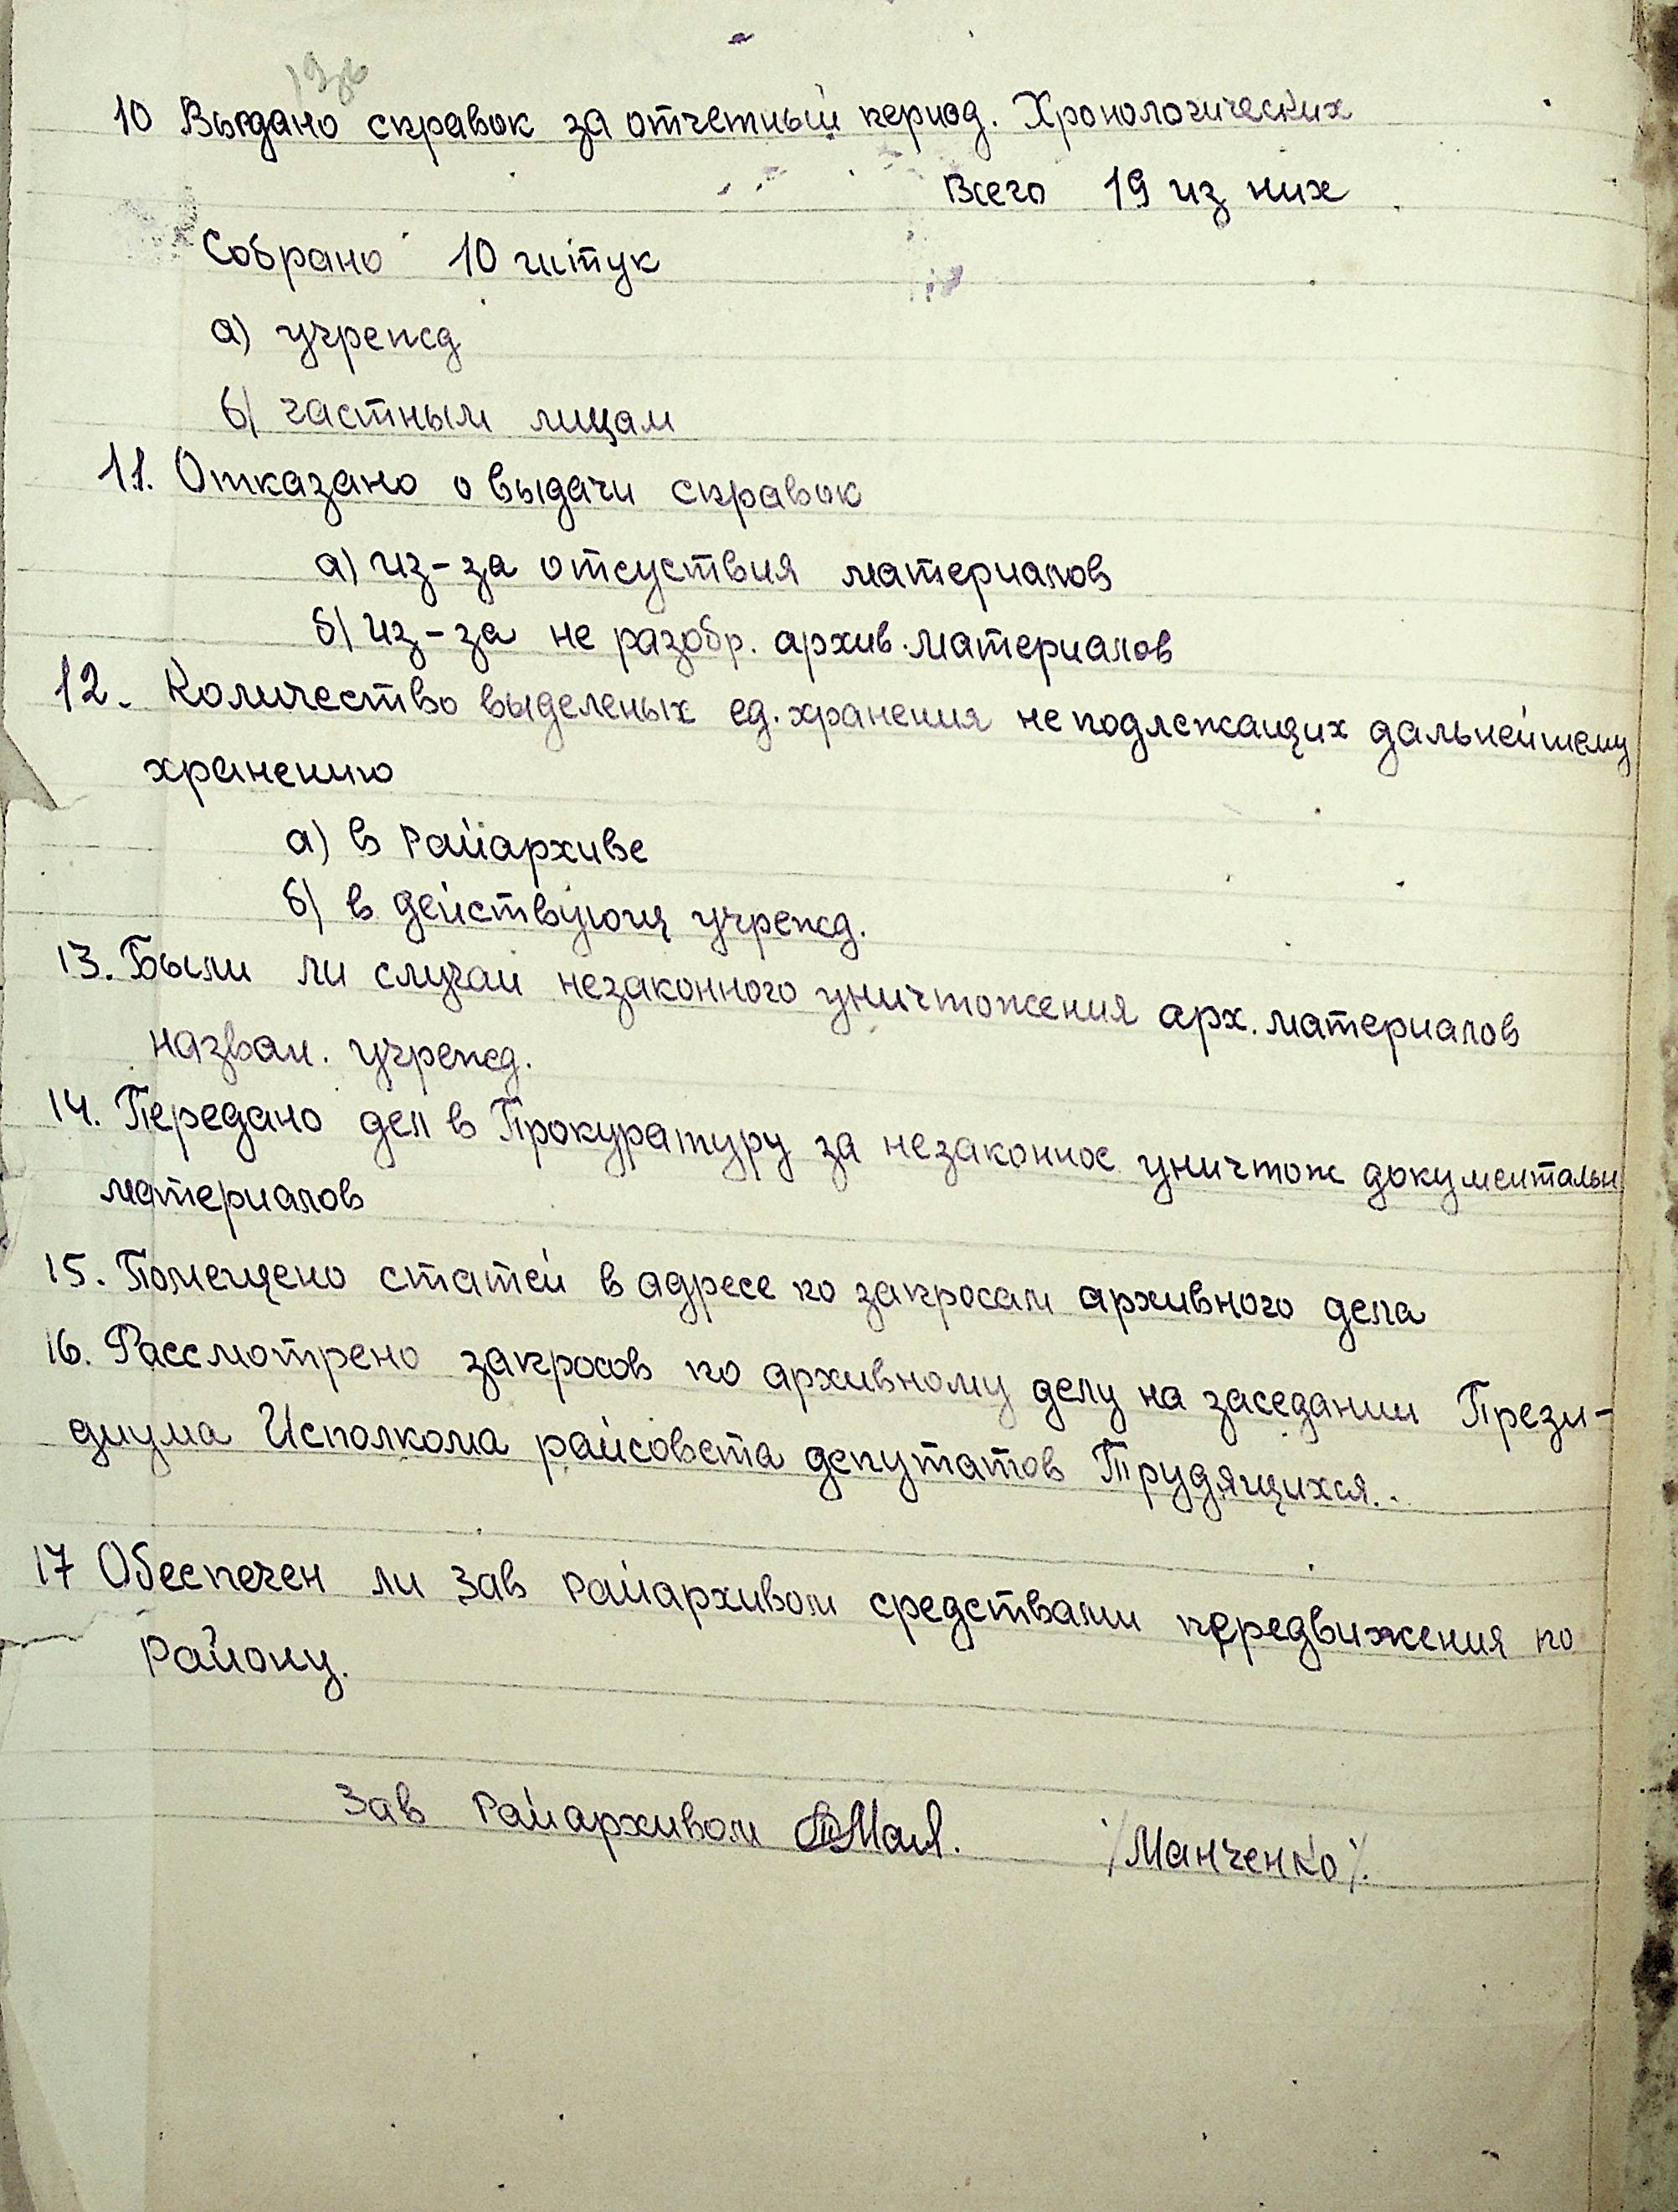 10 Выдано справок за отчетный период. Хронологических
Всего 19 из них
Собрано 10 штук
а) учрежд
б) частным лицам
11. Отказано о выдачи справок
а) из-за отсуствия материалов
б) из-за не разобр. архив. материалов
12. Количество выделеных ед. хранения не подлежащих дальнейшему
хранению
а) в Райархиве
б) в действующ учрежд.
13. Были ли случаи незаконного уничтожения арх. материалов
назван. учрежд.
14. Передано дел в Прокуратуру за незаконное уничтож документальн
материалов
15. Помещено статей в адресе по запросам архивного дела
16. Рассмотрено запросов по архивному делу на заседании Прези-
диума Исполкома райсовета депутатов Трудящихся.
17 Обеспечен ли Зав Райархивом средствами передвижения по
Району.
Зав Райархивом /Манченко/.